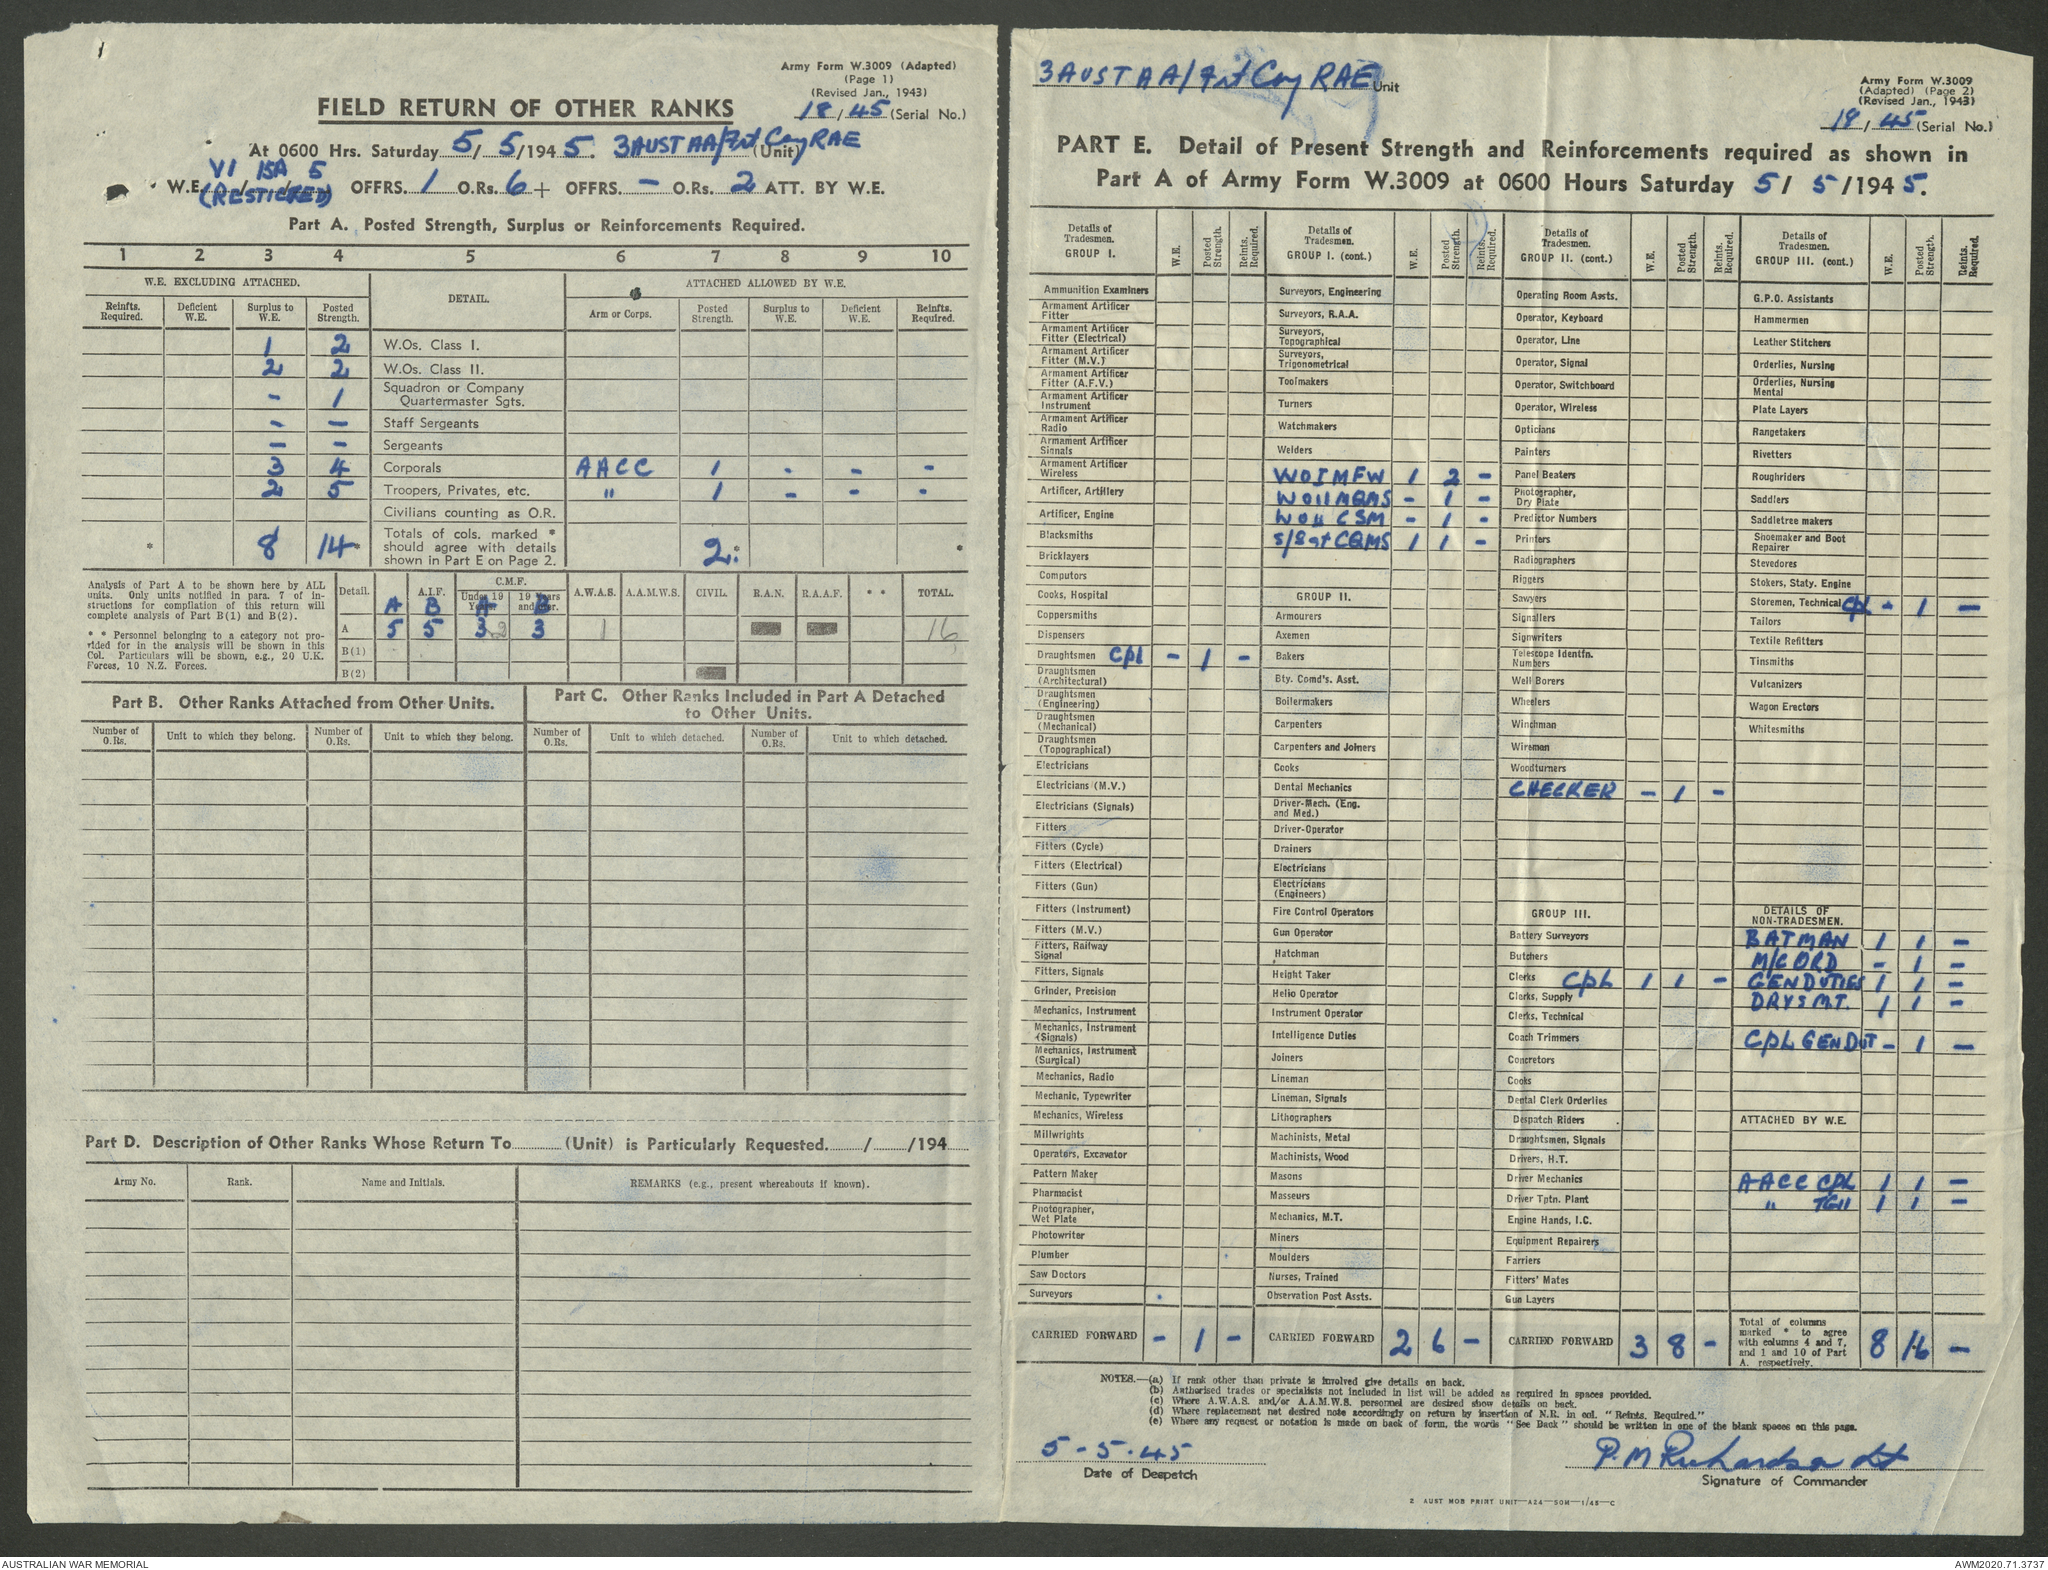 Army Form W.3009 (Adapted)
(Page 1)
(Revised Jan., 1943)
FIELD RETURN OF OTHER RANKS
18/45 (Serial No.)
At 0600 Hrs. Saturday 5/5/1945. 3 AUST AA/Frt Coy RAE (Unit)
VI 15A 5
W.E. / / / OFFRS. 1 O.Rs. 6 + OFFRS. - O.Rs. 2 ATT. BY W.E.
(RESTICKED)
Part A. Posted Strength, Surplus or Reinforcements Required.
1 2 3 4 5 6 7 8 9 10
W.E. EXCLUDING ATTACHED. DETAIL. ATTACHED ALLOWED BY W.E.
Reinfts. Required. Deficient W.E. Surplus to W.E. Posted Strength. Arm or Corps. Posted Strength. Surplus to W.E. Deficient W.E. Reinfts. Required.
1 2 W.Os. Class I.
2 2 W.Os. Class II.
- 1 Squadron or Company Quartermaster Sgts.
- - Staff Sergeants
- - Sergeants
3 4 Corporals AACC 1 - - -
2 5 Troopers, Privates, etc. " 1 - - -
Civilians counting as O.R.
* 8 14* Totals of cols. marked * should agree with details shown in Part E on Page 2. 2* *
Analysis of Part A to be shown here by ALL
units. Only units notified in para. 7 of in-
structions for compilation of this return will
complete analysis of Part B(1) and B(2).
* * Personnel belonging to a category not pro-
vided for in the analysis will be shown in this
Col. Particulars will be shown, e.g., 20 U.K.
Forces, 10 N.Z. Forces.
Detail. A.I.F. C.M.F. Under 19 Years. 19 Years and over. A.W.A.S. A.A.M.W.S. CIVIL. R.A.N. R.A.A.F. * * TOTAL.
A B A B
A 5 5 3 2 3 1 16
B(1)
B(2)
Part B. Other Ranks Attached from Other Units.
Number of O.Rs. Unit to which they belong. Number of O.Rs. Unit to which they belong.
Part C. Other Ranks Included in Part A Detached to Other Units.
Number of O.Rs. Unit to which detached. Number of O.Rs. Unit to which detached.
Part D. Description of Other Ranks Whose Return To (Unit) is Particularly Requested / /194
Army No. Rank. Name and Initials. REMARKS (e.g., present whereabouts if known).
3 AUST AA/Frt Coy RAE Unit
Army Form W.3009
(Adapted) (Page 2)
(Revised Jan., 1943)
18/45 (Serial No.)
PART E. Detail of Present Strength and Reinforcements required as shown in
Part A of Army Form W.3009 at 0600 Hours Saturday 5/5/1945.
Details of Tradesmen. GROUP I. W.E. Posted Strength. Reints. Required.
Ammunition Examiners
Armament Artificer Fitter
Armament Artificer Fitter (Electrical)
Armament Artificer Fitter (M.V.)
Armament Artificer Fitter (A.F.V.)
Armament Artificer Instrument
Armament Artificer Radio
Armament Artificer Signals
Armament Artificer Wireless
Artificer, Artillery
Artificer, Engine
Blacksmiths
Bricklayers
Computors
Cooks, Hospital
Coppersmiths
Dispensers
Draughtsmen Cpl - 1 -
Draughtsmen (Architectural)
Draughtsmen (Engineering)
Draughtsmen (Mechanical)
Draughtsmen (Topographical)
Electricians
Electricians (M.V.)
Electricians (Signals)
Fitters
Fitters (Cycle)
Fitters (Electrical)
Fitters (Gun)
Fitters (Instrument)
Fitters (M.V.)
Fitters, Railway Signal
Fitters, Signals
Grinder, Precision
Mechanics, Instrument
Mechanics, Instrument (Signals)
Mechanics, Instrument (Surgical)
Mechanics, Radio
Mechanic, Typewriter
Mechanics, Wireless
Millwrights
Operators, Excavator
Pattern Maker
Pharmacist
Photographer, Wet Plate
Photowriter
Plumber
Saw Doctors
Surveyors
CARRIED FORWARD - 1 -
Details of Tradesmen. GROUP I. (cont.) W.E. Posted Strength. Reints. Required.
Surveyors, Engineering
Surveyors, R.A.A.
Surveyors, Topographical
Surveyors, Trigonometrical
Toolmakers
Turners
Watchmakers
Welders
WOI MFW 1 2 -
WOII MQMS - 1 -
WOII CSM - 1 -
S/Sgt CQMS 1 1 -
GROUP II.
Armourers
Axemen
Bakers
Bty. Comd's. Asst.
Boilermakers
Carpenters
Carpenters and Joiners
Cooks
Dental Mechanics
Driver-Mech. (Eng. and Med.)
Driver-Operator
Drainers
Electricians
Electricians (Engineers)
Fire Control Operators
Gun Operator
Hatchman
Height Taker
Helio Operator
Instrument Operator
Intelligence Duties
Joiners
Lineman
Lineman, Signals
Lithographers
Machinists, Metal
Machinists, Wood
Masons
Masseurs
Mechanics, M.T.
Miners
Moulders
Nurses, Trained
Observation Post Assts.
CARRIED FORWARD 2 6 -
Details of Tradesmen. GROUP II. (cont.) W.E. Posted Strength. Reints. Required.
Operating Room Assts.
Operator, Keyboard
Operator, Line
Operator, Signal
Operator, Switchboard
Operator, Wireless
Opticians
Painters
Panel Beaters
Photographer, Dry Plate
Predictor Numbers
Printers
Radiographers
Riggers
Sawyers
Signallers
Signwriters
Telescope Identfn. Numbers
Well Borers
Wheelers
Winchman
Wireman
Woodturners
CHECKER - 1 -
GROUP III.
Battery Surveyors
Butchers
Clerks Cpl 1 1 -
Clerks, Supply
Clerks, Technical
Coach Trimmers
Concretors
Cooks
Dental Clerk Orderlies
Despatch Riders
Draughtsmen, Signals
Drivers, H.T.
Driver Mechanics
Driver Tptn. Plant
Engine Hands, I.C.
Equipment Repairers
Farriers
Fitters' Mates
Gun Layers
CARRIED FORWARD 3 8 -
Details of Tradesmen. GROUP III. (cont.) W.E. Posted Strength. Reints. Required.
G.P.O. Assistants
Hammermen
Leather Stitchers
Orderlies, Nursing
Orderlies, Nursing Mental
Plate Layers
Rangetakers
Rivetters
Roughriders
Saddlers
Saddletree makers
Shoemaker and Boot Repairer
Stevedores
Stokers, Staty. Engine
Storemen, Technical Cpl - 1 -
Tailors
Textile Refitters
Tinsmiths
Vulcanizers
Wagon Erectors
Whitesmiths
DETAILS OF NON-TRADESMEN.
BATMAN 1 1 -
M/C ORD - 1 -
GEN DUTIES 1 1 -
DRVS M.T. 1 1 -
CPL GEN DUT - 1 -
ATTACHED BY W.E.
AACC CPL 1 1 -
" TGII 1 1 -
Total of columns marked * to agree with columns 4 and 7, and 1 and 10 of Part A. respectively. 8 16 -
NOTES.—(a) If rank other than private is involved give details on back.
(b) Authorised trades or specialists not included in list will be added as required in spaces provided.
(c) Where A.W.A.S. and/or A.A.M.W.S. personnel are desired show details on back.
(d) Where replacement not desired note accordingly on return by insertion of N.R. in col. "Reints. Required."
(e) Where any request or notation is made on back of form, the words "See Back" should be written in one of the blank spaces on this page.
5-5-45
Date of Despatch
P.M. Richardson Lt
Signature of Commander
2 AUST MOB PRINT UNIT—A24—50M—1/45—C
AUSTRALIAN WAR MEMORIAL
AWM2020.71.3737